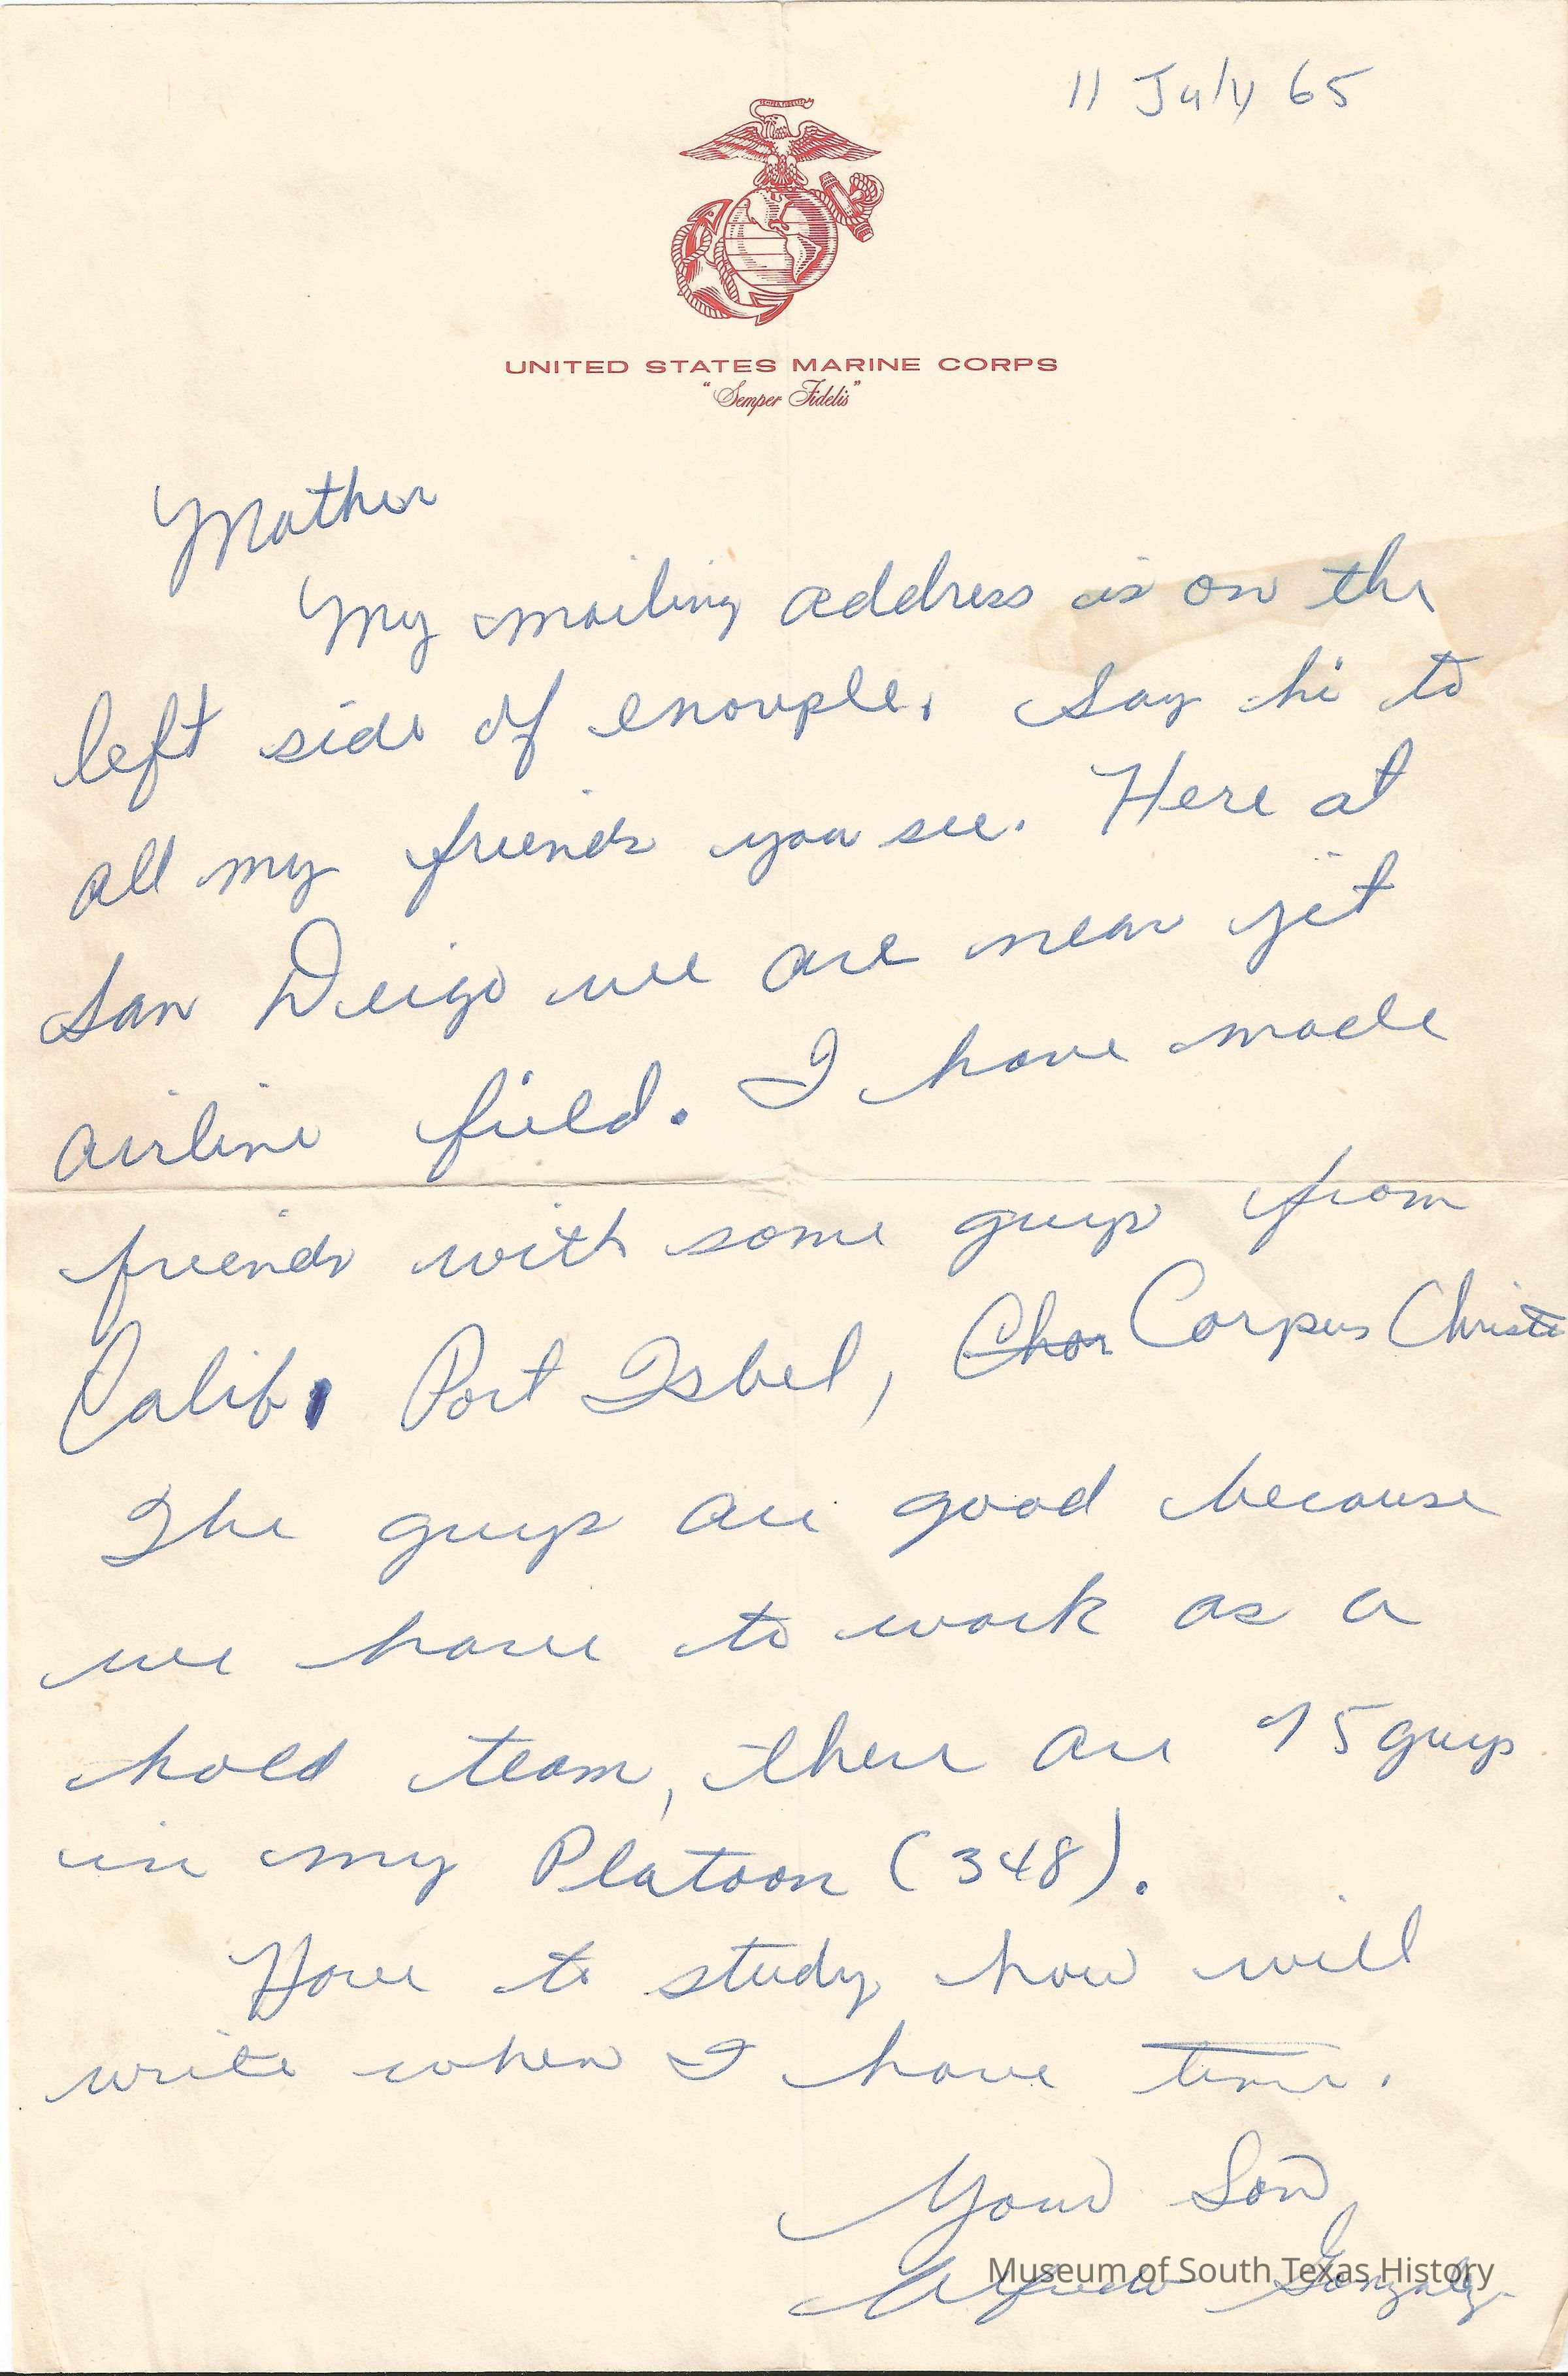 11 July 65
UNITED STATES MARINE CORPS
"Semper Fidelis"
Mother
My mailing address is on the
left side of enovple. Say hi to
all my friends you see. Here at
San Deigo we are near jet
airline field. I have made
friends with some guys from
Calif, Port Isbel, Chor Corpus Christe
The guys are good because
we have to work as a
hold team, there are 75 guys
in my Platoon (348).
Have to study how will
write when I have time.
Your Son
Gonzalez
Museum of South Texas History